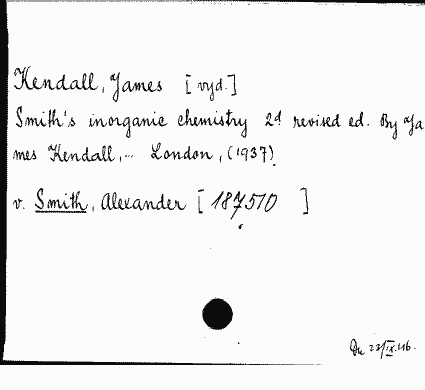 Kendall, James [vyd.]
Smith's inorganic chemistry 2d revised ed. By Ja
mes Kendall,... London, (1937).
v. Smith, Alexander [187510 ]
Du 23/IX.46.